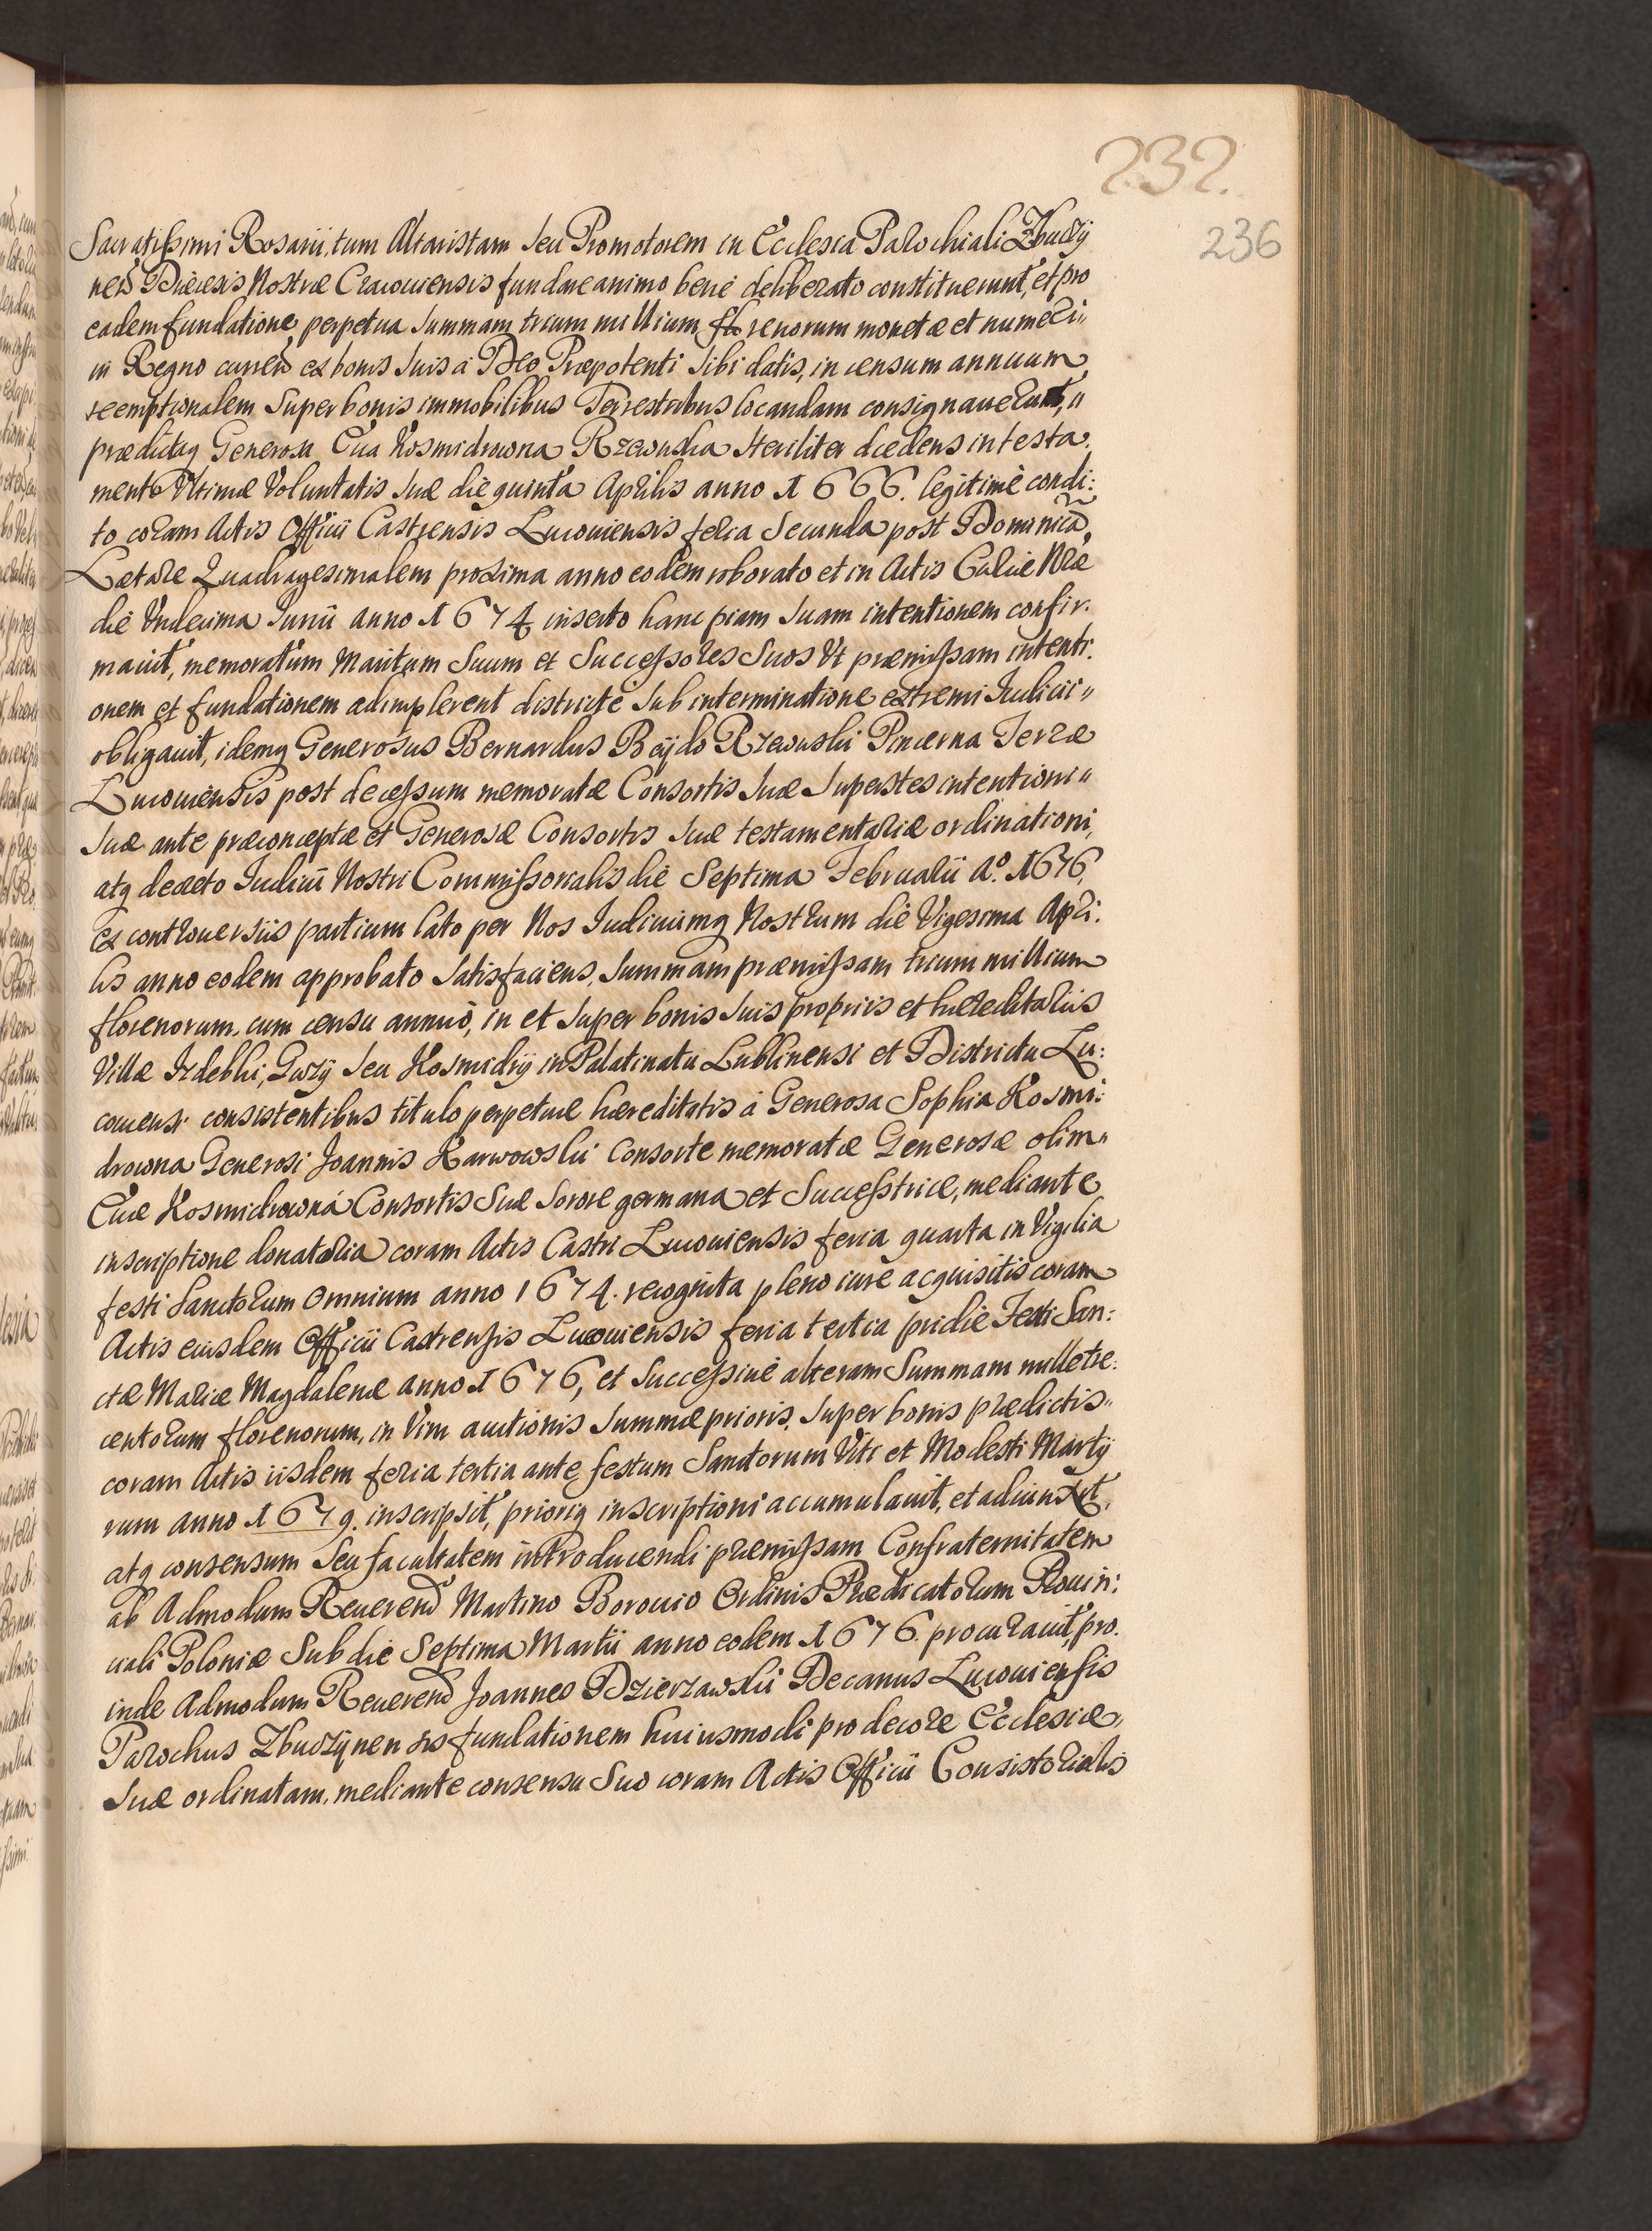 232.
236
Sacratissimi Rosarii, tum Altaristam seu Promotorem in Ecclesia Parochiali Zbuczÿ
nen̄ Diœcesis Nostræ Cracouiensis fundare animo benè deliberato constituerunt, et pro
eadem fundatione perpetua Summam trium millium florenorum monetæ et numeri
in Regno curren̄ ex bonis suis à Deo Præpotenti sibi datis, in censum annuum
reemptionalem super bonis immobilibus Terrestribus locandam consignauerunt,
prædictaq Generosa Eua Kosmidrowna Rzewuska steriliter decedens in testa.
mento Vltimæ Voluntatis suæ die quinta Aprilis anno 1666. legitimè condi:
to coram Actis Officii Castrensis Lucouiensis feria Secunda post Dominicā
Lætare Quadragesimalem proxima anno eodem roborato et in Actis Curiæ Nræ
die Vndecima Iunii anno 1674 inserto hanc piam suam intentionem confir.
mauit, memoratum Maritum Suum et Successores Suos Vt præmissam intenti.
onem et fundationem adimplerent districtè sub interminatione extremi Iudicii
obligauit, idemq Generosus Bernardus Beÿdo Rzewuski Pincerna Terræ
Lucouiensis post decessum memoratæ Consortis suæ superstes intentioni
suæ ante præconceptæ et Generosæ Consortis suæ testamentariæ ordinationi,
atq decreto Iudicii Nostri Commissorialis die Septima Februarii A.º 1676.
ex controuersiis partium lato per Nos Iudiciumq Nostrum die Vigesima Apri.
lis anno eodem approbato satisfaciens, summam præmissam trium millium
florenorum, cum censu annuo, in et super bonis suis propriis et hæreditariis
Villæ Izdebki, Guzÿ seu Kosmidrÿ in Palatinatu Lublinensi et Districtu Lu:
couiensi consistentibus titulo perpetuæ hæreditatis à Generosa Sophia Kosmi:
drowna Generosi Joannis Karwowski Consorte memoratæ Generosæ olim
Euæ Kosmidrowna Consortis Suæ sorore germana et Successtrice, mediante
inscriptione donatoria coram Actis Castri Lucouiensis feria quarta in Vigilia
festi Sanctorum Omnium anno 1674. recognita pleno iure acquisitis coram
Actis eiusdem Officii Castrensis Lucouiensis feria tertia pridie Festi San:
ctæ Mariæ Magdalenæ anno 1676, et Successiuè alteram Summam mille tre:
centorum florenorum, in Vim auctionis summæ prioris, super bonis prædictis
coram Actis iisdem feria tertia ante festum Sanctorum Viti et Modesti Martÿ
rum anno 1679. inscripsit, prioriq inscriptioni accumulauit, et adiunxit,
atq consensum seu facultatem introducendi præmissam Confraternitatem
ab Admodum Reueren̄ Martino Borouio Ordinis Prædicatorum Prouin:
ciali Poloniæ Sub die Septima Martii anno eodem 1676. procurauit, pro.
inde Admodum Reueren̄ Joannes Dzierzawski Decanus Lucouiensis
Parochus Zbuczÿnensis fundationem huiusmodi pro decore Ecclesiæ
suæ ordinatam, mediante consensu Suo coram Actis Officii Consistorialis